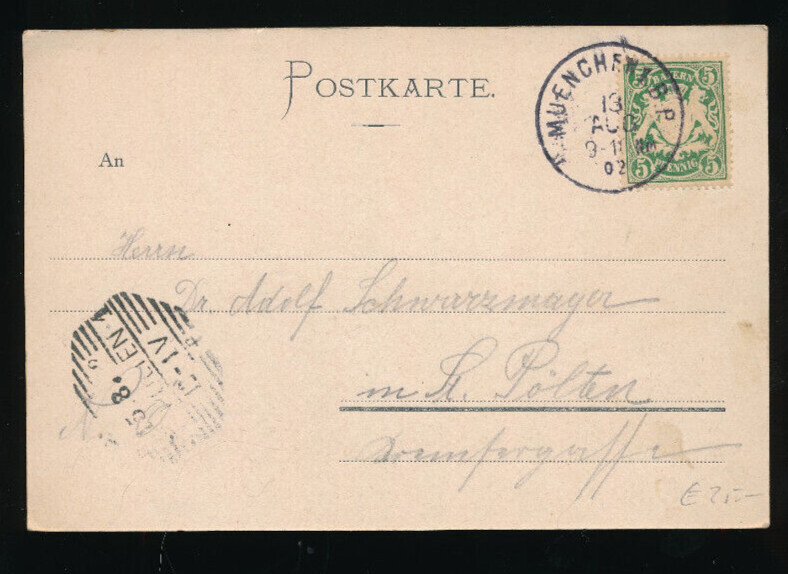 POSTKARTE.
MUENCHEN 1. B.P.
13
AUG
9-10 Nm
02
5 BAYERN 5
5 PFENNIG 5
An
Herrn
Dr. Adolf Schwarzmayer
in St. Pölten
N.
€ 25.-